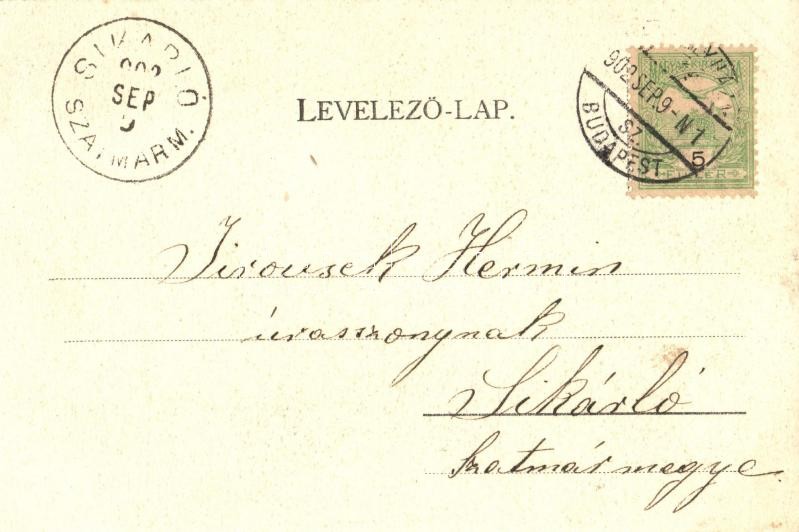 SIKARLÓ
902
SEP
SZATMÁRM.
LEVELEZŐ-LAP.
902 SEP. 9 - N 1
SZ.
BUDAPEST
5
FILLÉR
Jirousek Hermin
úrasszonynak
Sikárló
Szatmármegye.